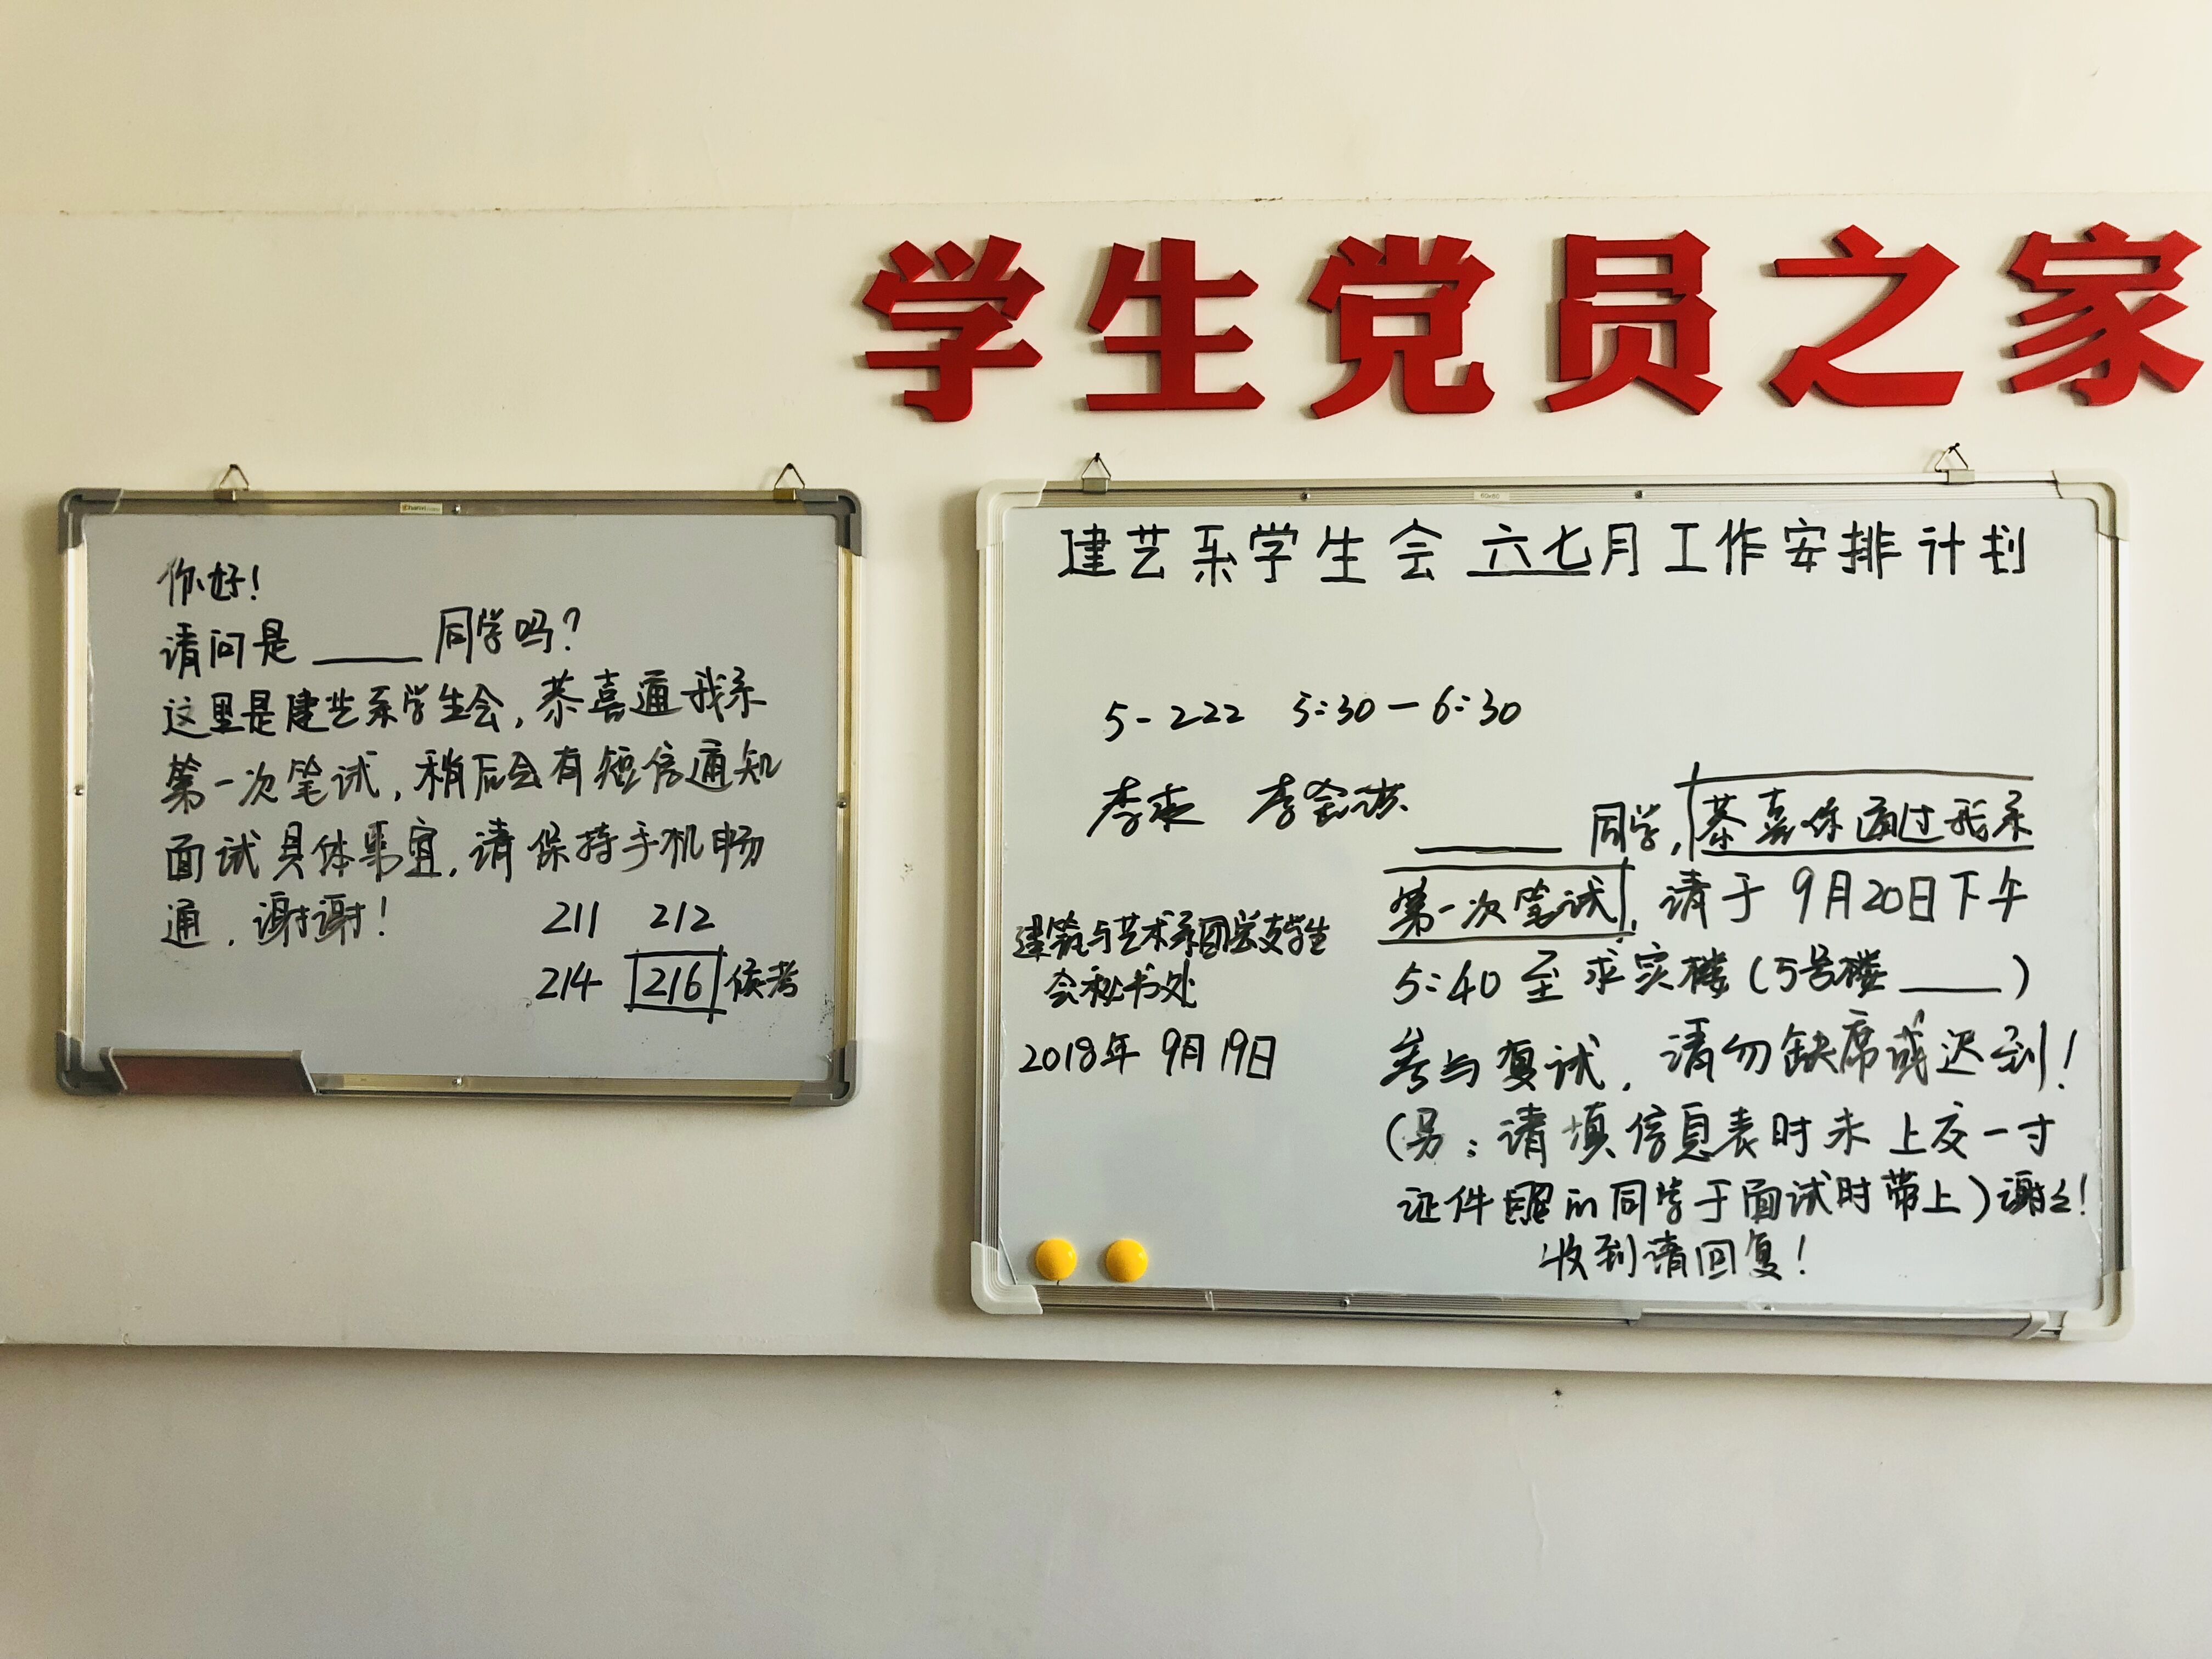 学生党员之家
你好！
请问是＿＿＿同学吗？
这里是建艺系学生会，恭喜通我系
第一次笔试，稍后会有短信通知
面试具体事宜，请保持手机畅
通，谢谢！
211 212
214 216 候考
建艺系学生会六七月工作安排计划
5-222 5:30－6:30
李 李
＿＿＿同学，恭喜你通过我系
第一次笔试，请于9月20日下午
5:40至求实楼（5号楼＿＿＿）
参与复试，请勿缺席或迟到！
（另：请填信息表时未上交一寸
证件照的同学于面试时带上）谢谢！
收到请回复！
建筑与艺术系团总支学生
会秘书处
2018年9月19日